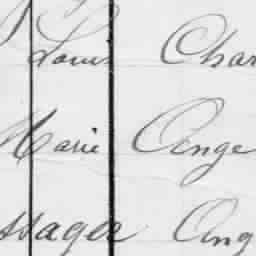 Louis Char
Marie Ange
ssager Ang